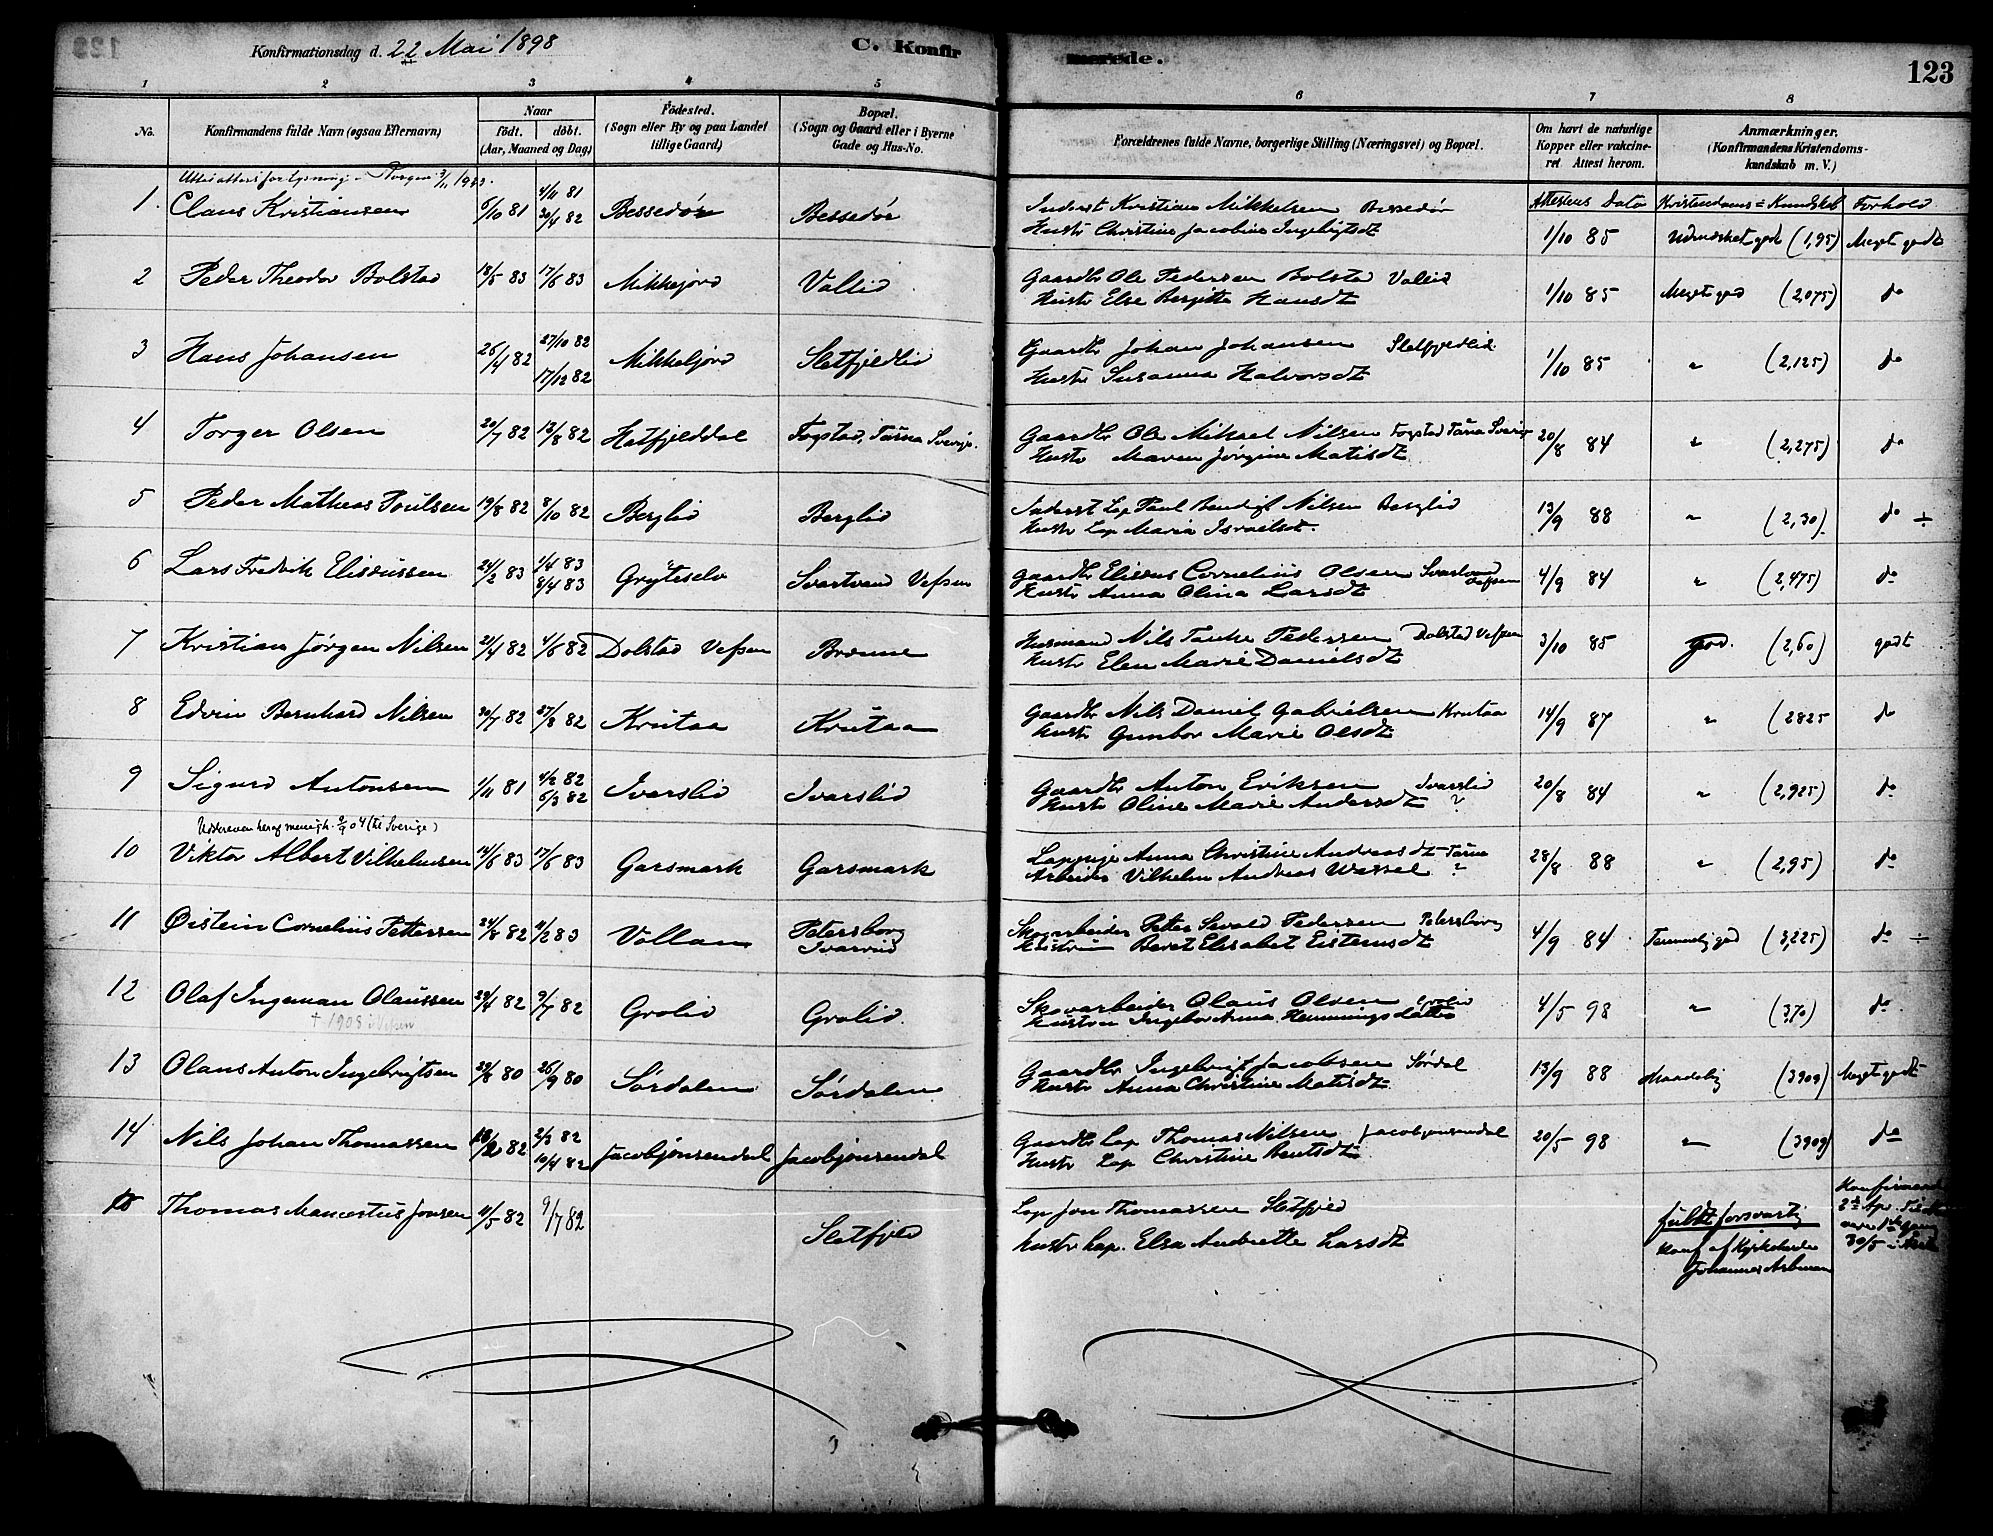 Konfirmationsdag d. 22 Mai 1898
C. Konfir merede.
123
1 2 3 4 5 6 7 8
No.
Konfirmandens fulde Navn (ogsaa Efternavn)
Naar
födt. döbt.
(Aar, Maaned og Dag)
Födested.
(Sogn eller By og paa Landet
tillige Gaard)
Bopæl.
(Sogn og Gaard eller i Byerne
Gade og Hus-No.
Forældrenes fulde Navne, borgerlige Stilling (Næringsvei) og Bopæl.
Om havt de naturlige
Kopper eller vakcine-
ret Attest herom.
Anmærkninger.
(Konfirmandens Kristendoms-
kundskab m. V.)
Attestens Dato Kristendoms=Kundskab Forhold
1 Claus Kristiansen 6/10 81 4/11 81 20/4 82 Bessedør Bessedør
Inderst Kristian Mikkelsen Bessedør
Hustr Christine Jacobine Ingebrigtsdt
1/10 85 Udmærket god (1,95) Meget godt
2 Peder Theodor Bolstad 18/5 83 17/6 83 Mikkeljord Vallid
Gaardbr Ole Pedersen Bolstad Vallid
Hustr Else Bergitte Hansdt
1/10 85 Meget god (2,075) do
3 Hans Johansen 26/4 82 27/10 82 17/12 82 Mikkeljord Sletfjeldlid
Gaardbr Johan Johansen Sletfjeldlid
Hustr Susanna Halvorsdt
1/10 85 " (2,125) do
4 Torger Olsen 20/7 82 13/8 82 Hatfjelddal Fogstad, Tärna Sverige.
Gaardbr Ole Mikael Nilsen Fogstad Tärna Sverige
Hustr Maren Jørgine Matisdt
20/8 84 " (2,275) do
5 Peder Mathias Poulsen 19/8 82 8/10 82 Berglid Berglid
Inderst Lap Paul Bendigt Nilsen Berglid
Hustr Lap Maria Israelsdt.
13/9 88 " (2,30) do ÷
6 Lars Fredrik Elisæussen 24/2 83 1/4 83 8/4 83 Gryteselv Svartvand Vefsen
Gaardbr Elisæus Cornelius Olsen Svartvand Vefsen
Hustr Anna Olina Larsdt
4/9 84 " (2,475) do
7 Kristian Jørgen Nilsen 21/4 82 4/6 82 Dolstad Vefsen Brænne
Husmand Nils Tanke Pedersen Dolstad Vefsen
Hustr Elen Marie Danielsdt
3/10 85 god. (2,60) godt
8 Edvin Bernhard Nilsen 30/7 82 27/8 82 Krutaa Krutaa
Gaardbr Nils Daniel Gabrielsen Krutaa
Hustr Gunbor Marie Olsdt
14/9 87 " (2825 do
9 Sigurd Antonsen 1/11 81 4/2 82 5/3 82 Ivarslid Ivarslid
Gaardbr Anton Eriksen Ivarslid
Hustr Oline Marie Andersdt ?
20/8 84 " (2,925) do
10 Viktor Albert Vilhelmsen 14/6 83 17/6 83 Garsmark Garsmark
Lappige Anna Christine Andreasdt Tärna
Arbeider Vilhelm Andreas Wessel ?
28/8 88 " (2,95) do
11 Øistein Cornelius Pettersen 24/8 82 11/2 83 Vollan Petersborg
Skogarbeider Petter Sevald Pedersen Petersborg
Hustru Beret Elisabet Eistensdt
4/9 84 Temmelig god (3,225) do ÷
12 Olaf Ingeman Olaussen 29/4 82 9/7 82 Grolid Grolid.
† 1908 i Vefsen
Skovarbeider Olaus Olsen Grolid
Hustru Ingebor Anna Hemmingsdatter
4/5 98 " (3,70) do
13 Olaus Anton Ingebrigtsen 29/8 80 26/9 80 Sørdalen Sørdalen
Gaardbr Ingebrigt Jacobsen Sørdal
Hustr Anna Christine Matisdt
13/9 88 Maadelig (3909) Meget godt
14 Nils Johan Thomassen 18/2 82 2/3 82 10/4 82 Jacobjonsendal Jacobjonsendal
Gaardbr Lap Thomas Nilsen Jacobjonsendal
Hustr Lap Christine Bentsdt
20/5 98 " (3909) do
15 Thomas Jonsen 11/5 82 9/7 82 Sletfjeld
Lap Jon Thomassen Sletfjeld
Hustr Lap. Elsa Andrette Larsdt
fuldt forsvarlig
Konf af Kyrkoherde
Johannes Arbman